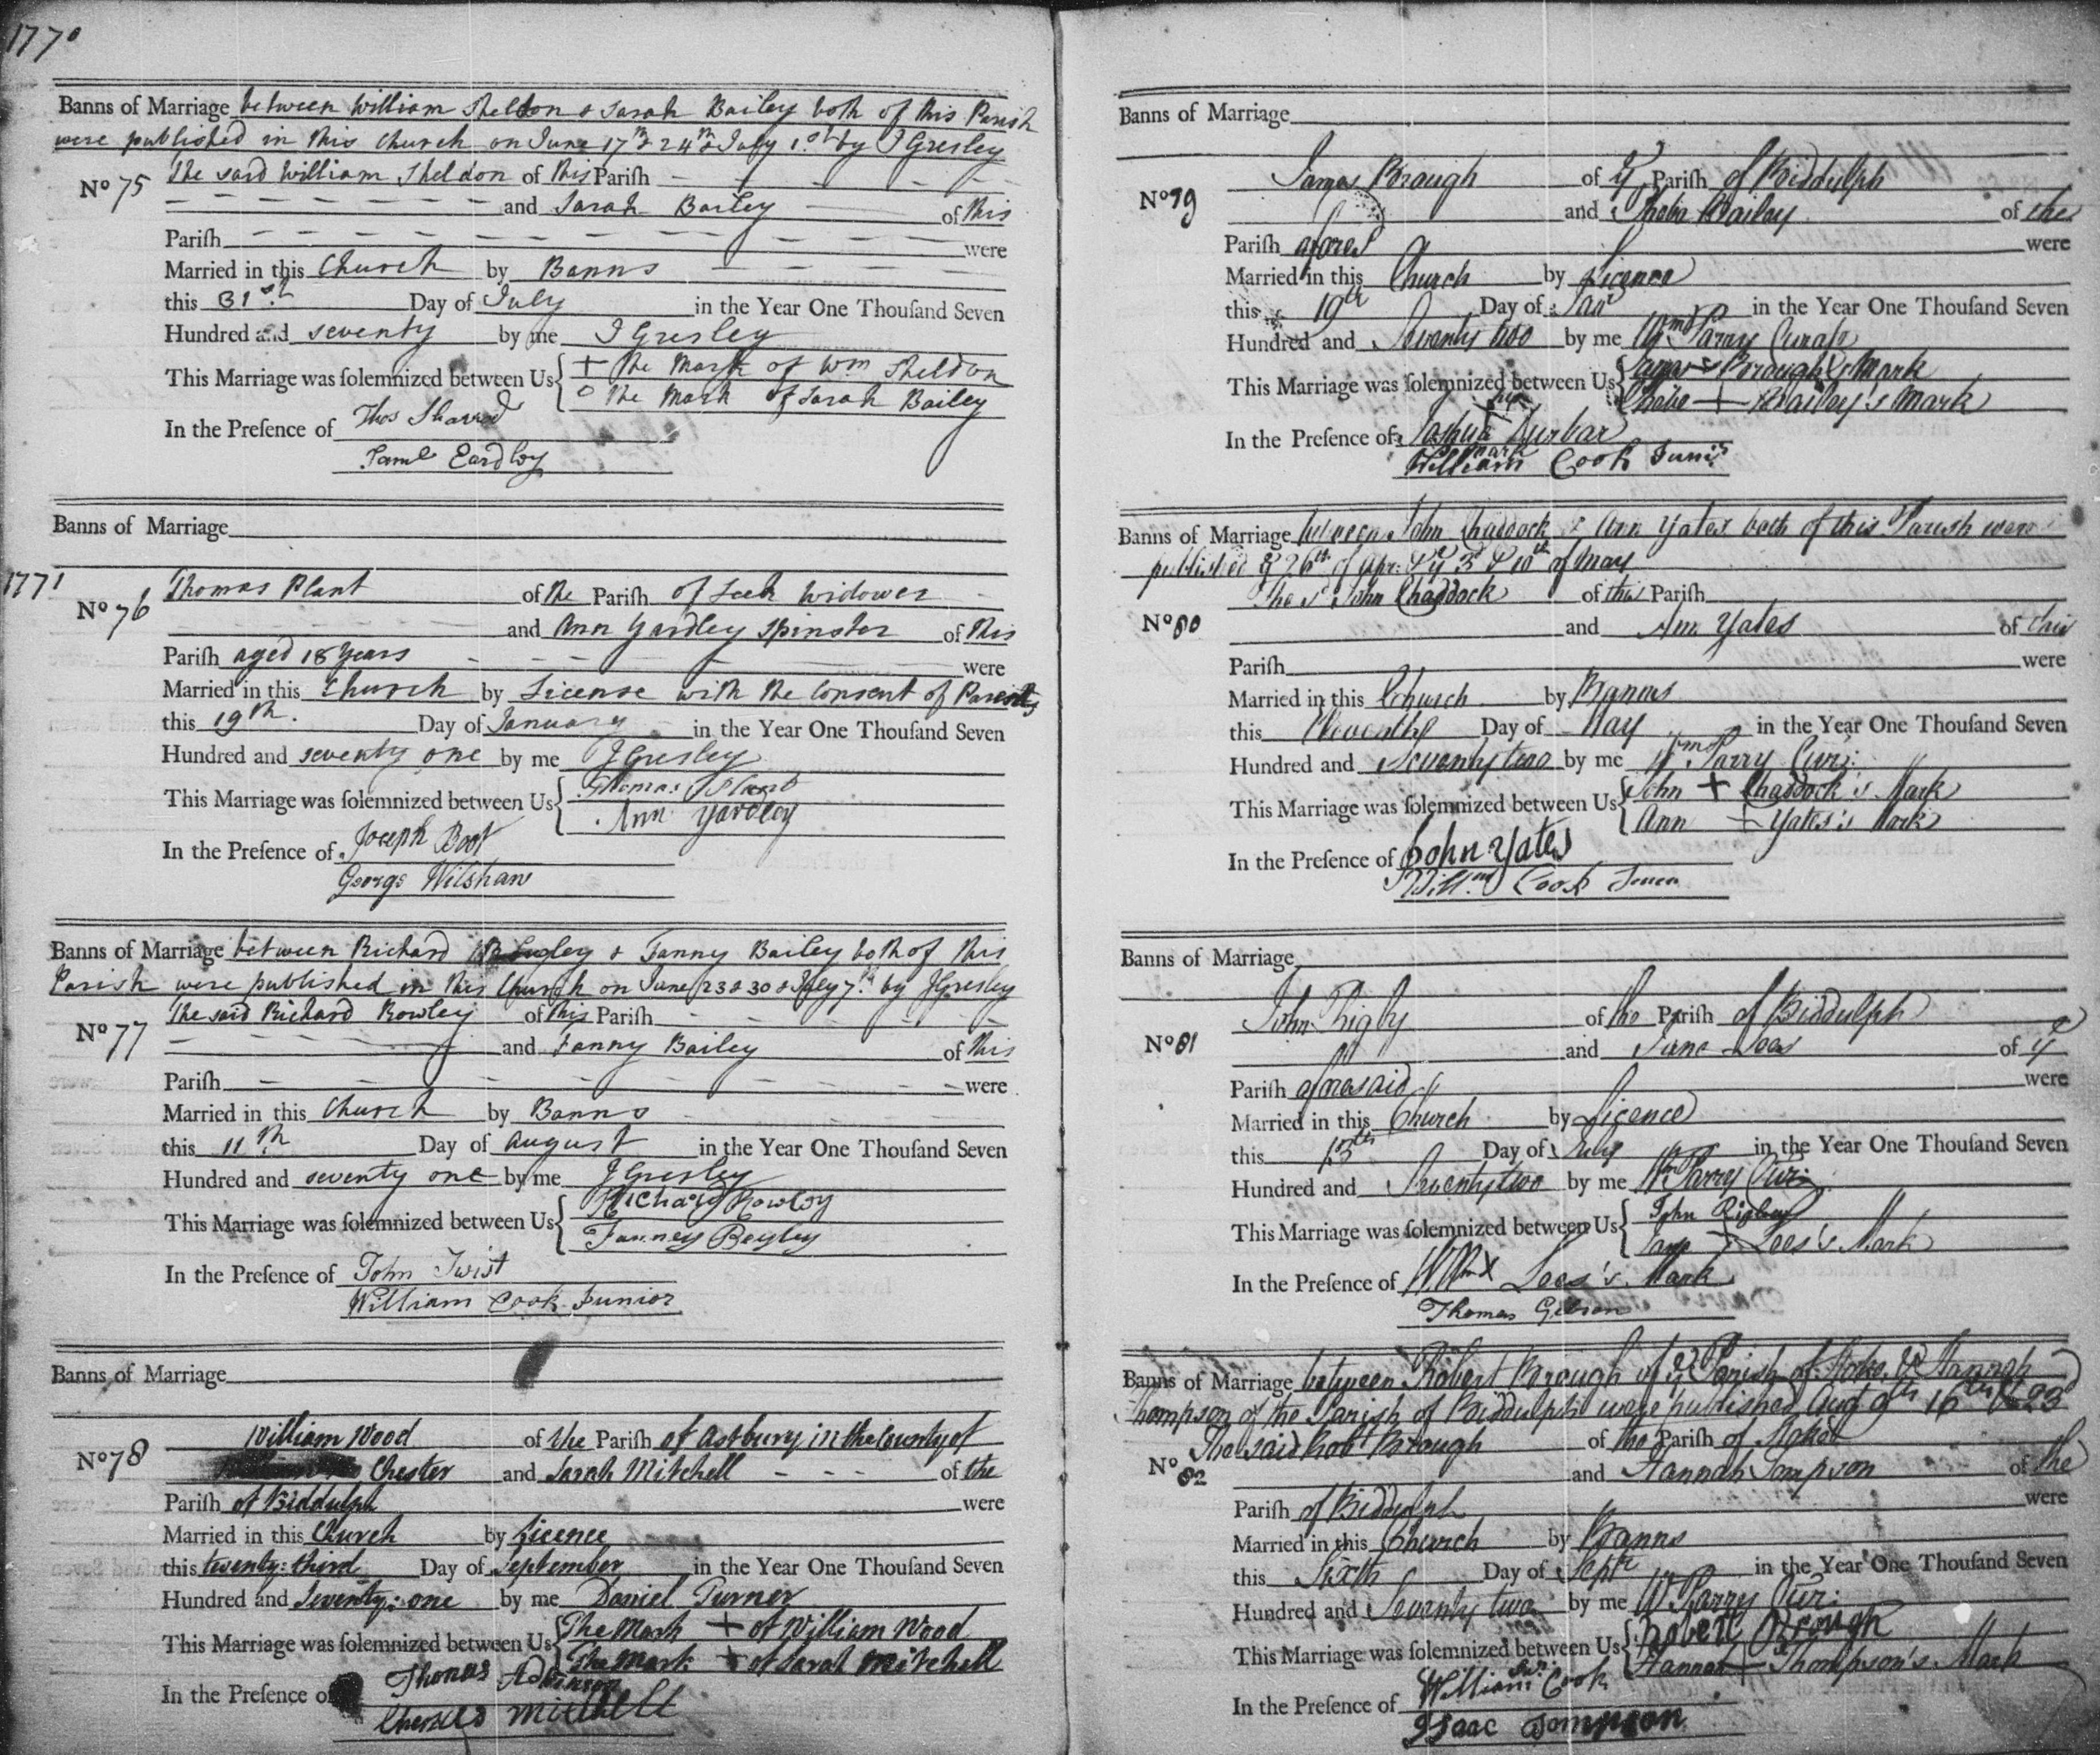 1770
Banns of Marriage between William Sheldon & Sarah Bailey both of this Parish
were published in this Church on June 17th & 24th & July 1st by J Gresley
No 75 The said William Sheldon of this Pariſh
and Sarah Bailey of this
Pariſh were
Married in this Church by Banns
this 31st Day of July in the Year One Thouſand Seven
Hundred and seventy by me J Gresley
This Marriage was ſolemnized between Us + the Mark of Wm Sheldon
o the Mark of Sarah Bailey
In the Preſence of Thos Sharrad
Saml Eardley
Banns of Marriage
1771
No 76 Thomas Plant of the Pariſh of Leek Widower
and Ann Yardley Spinster of this
Pariſh aged 18 Years were
Married in this Church by License with the Consent of Parents
this 19th. Day of January in the Year One Thouſand Seven
Hundred and seventy one by me J Gresley
This Marriage was ſolemnized between Us Thomas Plant
Ann Yardley
In the Preſence of Joseph Boot
George Wilshaw
Banns of Marriage between Richard & Fanny Bailey both of this
Parish were published in this Church on June 23 & 30 & July 7th by J Gresley
No 77 The said Richard Rowley of this Pariſh
and Fanny Bailey of this
Pariſh were
Married in this Church by Banns
this 11th Day of August in the Year One Thouſand Seven
Hundred and seventy one by me J Gresley
This Marriage was ſolemnized between Us Richard Rowley
Fanney Beyley
In the Preſence of John Twist
William Cook Junior
Banns of Marriage
No 78 William Wood of the Pariſh of Astbury in the County of
Chester and Sarah Mitchell of the
Pariſh of Biddulph were
Married in this Church by Licence
this twenty: third Day of September in the Year One Thouſand Seven
Hundred and Seventy: one by me Daniel Turner
This Marriage was ſolemnized between Us The Mark + of William Wood
The Mark + of Sarah Mitchell
In the Preſence of Thomas Adkinson
Mitchell
Banns of Marriage
No 79 James Brough of ye Pariſh of Biddulph
and Phebe Bailey of the
Pariſh aforesd were
Married in this Church by Licence
this 19th Day of Jan in the Year One Thouſand Seven
Hundred and Seventy two by me Wm Parry Curate
This Marriage was ſolemnized between Us James Brough's Mark
Phebe + Bailey's Mark
In the Preſence of Joshua his x mark Durbar
William Cook Junir
Banns of Marriage between John Chaddock & Ann Yates both of this Parish were
published ye 26th of Apr: & ye 3d & 10th of May
No 80 The sd John Chaddock of this Pariſh
and Ann Yates of this
Pariſh were
Married in this Church by Banns
this Day of May in the Year One Thouſand Seven
Hundred and Seventy two by me Wm Parry Cur:
This Marriage was ſolemnized between Us John + Chaddock's Mark
Ann + Yates's Mark
In the Preſence of John Yates
Willm Cook
Banns of Marriage
No 81 John Rigby of the Pariſh of Biddulph
and Jane Lees of ye
Pariſh aforesaid were
Married in this Church by Licence
this 13th Day of July in the Year One Thouſand Seven
Hundred and Seventy two by me Wm Parry Cur:
This Marriage was ſolemnized between Us John Rigby
Jane + Lees's Mark
In the Preſence of Wm x Lees's Mark
Thomas Gibson
Banns of Marriage between Robert Brough of ye Parish of Stoke & Hannah
Thompson of the Parish of Biddulph were published Aug 9th 16th & 23d
No 82 The said Robt Brough of the Pariſh of Stoke
and Hannah Tompson of the
Pariſh of Biddulph were
Married in this Church by Banns
this Sixth Day of Septr in the Year One Thouſand Seven
Hundred and Seventy two by me W Parry Cur:
This Marriage was ſolemnized between Us Robert Brough
Hannah + Thompson's Mark
In the Preſence of William Cook Junr
Isaac Tompson